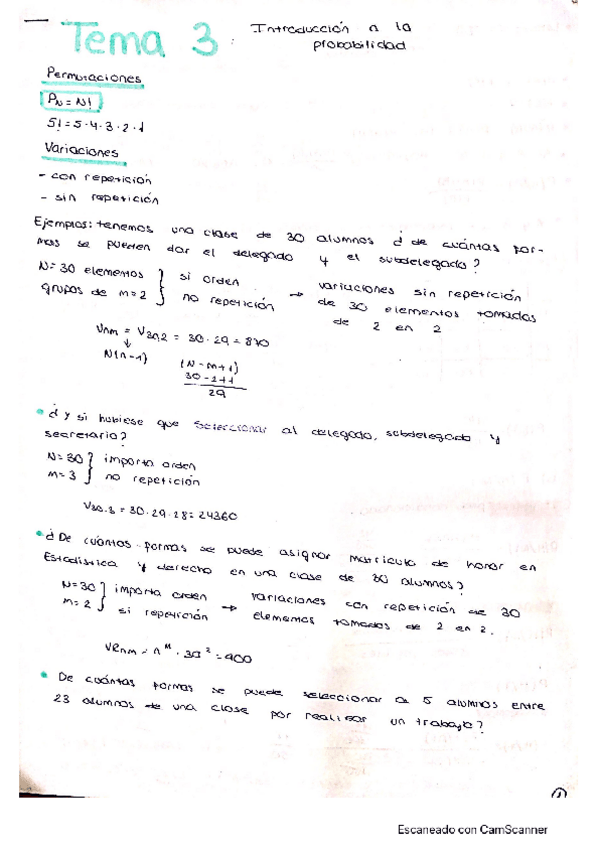 Tema 3: Introducción a la
probabilidad
Permutaciones
PN = N!
5! = 5·4·3·2·1
Variaciones
- con repetición
- sin repetición
Ejemplos: tenemos una clase de 30 alumnos ¿ de cuántas for-
mas se pueden dar el delegado y el subdelegado?
N=30 elementos } si orden → variaciones sin repetición
grupos de m=2 } no repetición de 30 elementos tomados
de 2 en 2
Vnm = V30,2 = 30·29 = 870
↓
N(n-1) (N-m+1)
30-2+1
29
• ¿ y si hubiese que seleccionar al delegado, subdelegado y
secretario?
N=30 } importa orden
m=3 } no repetición
V30.3 = 30·29·28 = 24360
• ¿ De cuántas formas se puede asignar matrícula de honor en
Estadística y derecho en una clase de 30 alumnos?
N=30 } importa orden → variaciones con repetición de 30
m=2 } si repetición elementos tomados de 2 en 2.
VRnm = n^m · 30² = 900
• De cuántas formas se puede seleccionar a 5 alumnos entre
23 alumnos de una clase por realizar un trabajo?
1
Escaneado con CamScanner